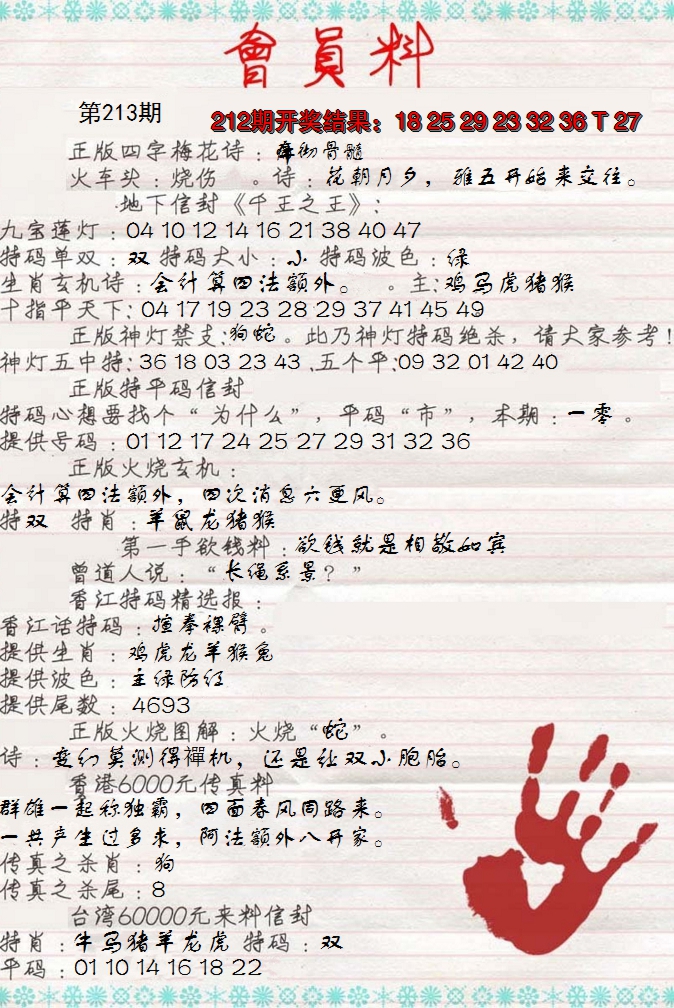 會員料
第213期
212期开奖结果：18 25 29 23 32 36 T 27
正版四字梅花诗：痒彻骨髓
火车头：烧伤 。诗：花朝月夕，雅五开始来交往。
地下信封《千王之王》：
九宝莲灯：04 10 12 14 16 21 38 40 47
特码单双：双 特码大小：小 特码波色：绿
生肖玄机诗：会计算四法额外。 。主：鸡马虎猪猴
十指平天下：04 17 19 23 28 29 37 41 45 49
正版神灯禁支：狗蛇。此乃神灯特码绝杀，请大家参考！
神灯五中特：36 18 03 23 43 .五个平：09 32 01 42 40
正版特平码信封
特码心想要找个“为什么”，平码“市”，本期：一零。
提供号码：01 12 17 24 25 27 29 31 32 36
正版火烧玄机：
会计算四法额外，四次消息六更风。
特双 特肖：羊鼠龙猪猴
第一手欲钱料：欲钱就是相敬如宾
曾道人说：“长绳系景？”
香江特码精选报：
香江话特码：揎拳裸臂。
提供生肖：鸡虎龙羊猴兔
提供波色：主绿防红
提供尾数：4693
正版火烧图解：火烧“蛇”。
诗：变幻莫测得禪机，还是让双小胞胎。
香港6000元传真料
群雄一起称独霸，四面春风同路来。
一共产生过多未，阿法额外八开家。
传真之杀肖：狗
传真之杀尾：8
台湾60000元来料信封
特肖：牛马猪羊龙虎 特码：双
平码：01 10 14 16 18 22